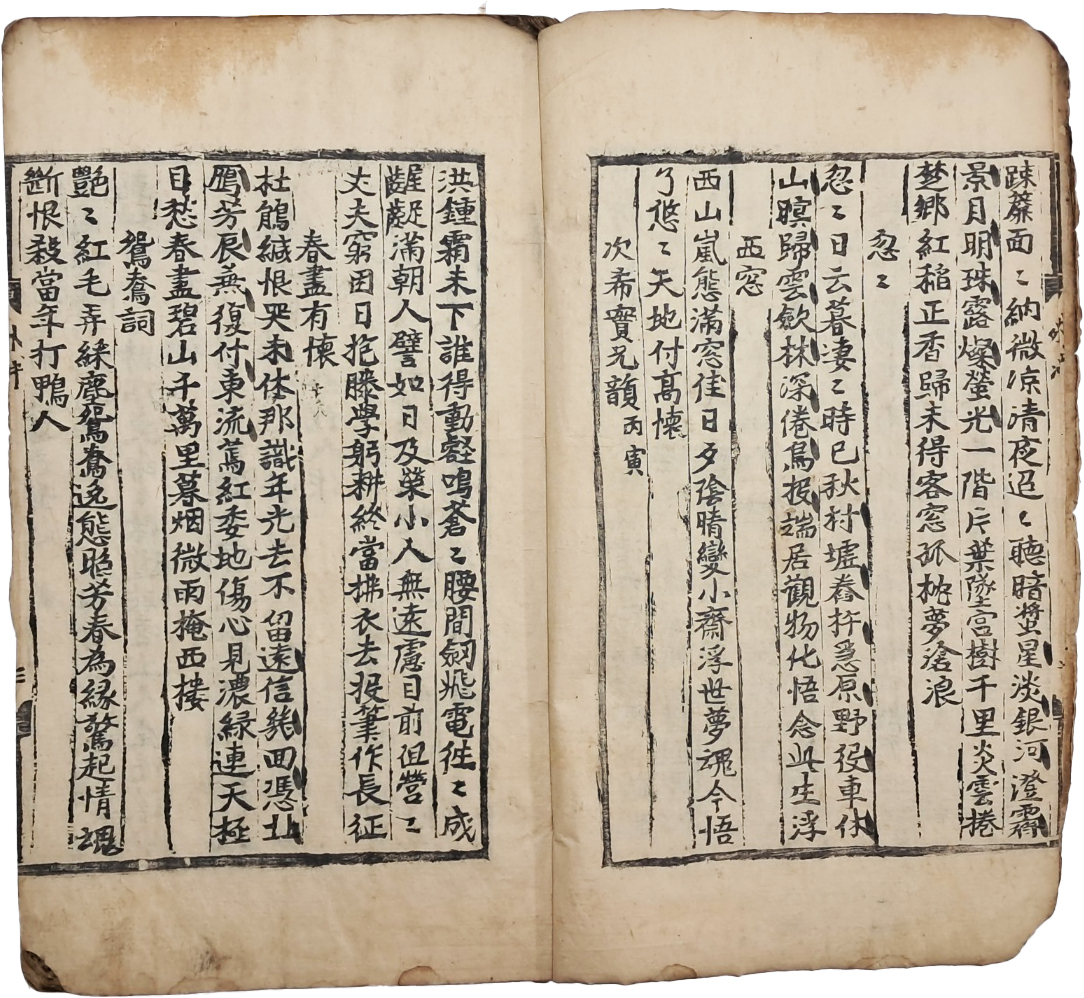 疎簾面〻納微凉清夜迢〻聽暗螀星淡銀河澄霽
景月明珠露燦螢光一階片葉墜宮樹千里炎雲捲
楚鄉紅稲正香歸未得客窓孤枕夢滄浪
忽〻
忽〻日云暮凄〻時已秋村墟舂杵急原野役車休
山暝歸雲歛林深倦鳥投端居觀物化悟念此生浮
西窓
西山嵐態滿窓佳日夕陰晴變小齋浮世夢魂今悟
了悠〻天地付高懷
次希實兄韻 丙寅
洪鍾霜未下誰得動鏗鳴蒼〻腰間劒飛電徃〻成
齷齪滿朝人譬如日及榮小人無遠慮目前徂營〻
丈夫窮困日抱膝學躬耕終當拂衣去投筆作長征
春盡有懷
杜鵑緘恨哭未休那識年光去不留遠信幾回憑北
鴈芳辰無復付東流蔫紅委地傷心見濃綠連天極
目愁春盡碧山千萬里暮烟微雨掩西樓
鴛鴦詞
艷〻紅毛弄綵塵鴛鴦逸態照芳春為緣驚起情魂
斷恨殺當年打鴨人